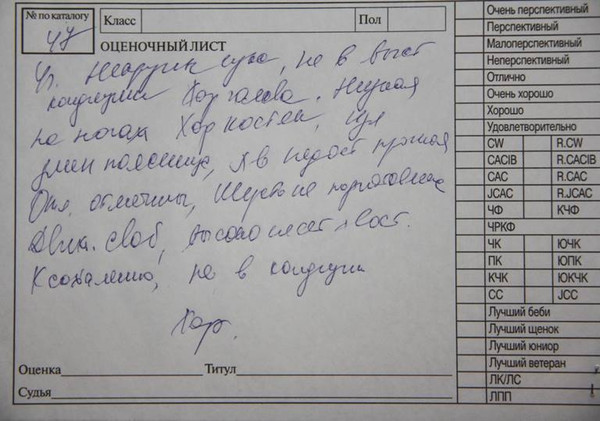 № по каталогу
47
Класс
Пол
ОЦЕНОЧНЫЙ ЛИСТ
сука, не в выст
кондиции Хор голова. Низкая
на ногах Хор костяк,
длин поясница, л-в недост прямая
отличны, Шерсть не подготовлена
Движ. своб, высоко несет хвост.
К сожалению, не в кондиции
Хор.
Оценка
Титул
Судья
Очень перспективный
Перспективный
Малоперспективный
Неперспективный
Отлично
Очень хорошо
Хорошо
Удовлетворительно
CW R.CW
CACIB R.CACIB
CAC R.CAC
JCAC R.JCAC
ЧФ КЧФ
ЧРКФ
ЧК ЮЧК
ПК ЮПК
КЧК ЮКЧК
СС JCC
Лучший беби
Лучший щенок
Лучший юниор
Лучший ветеран
ЛК/ЛС
ЛПП